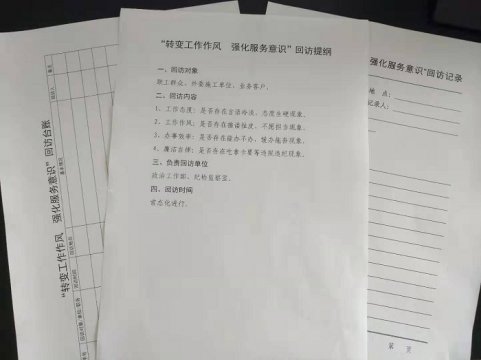 “转变工作作风 强化服务意识”回访提纲
一、回访对象
职工群众、外委施工单位、业务客户。
二、回访内容
1、工作态度：是否存在言语冷淡、态度生硬现象。
2、工作作风：是否存在推诿扯皮、不愿担当现象。
3、办事效率：是否存在能办不办、缓办拖办现象。
4、廉洁自律：是否存在吃拿卡要等违规违纪现象。
三、负责回访单位
政治工作部、纪检监察室。
四、回访时间
常态化进行。
“转变工作作风 强化服务意识”回访台账
强化服务意识”回访记录
地 点：
记录人：
第 页